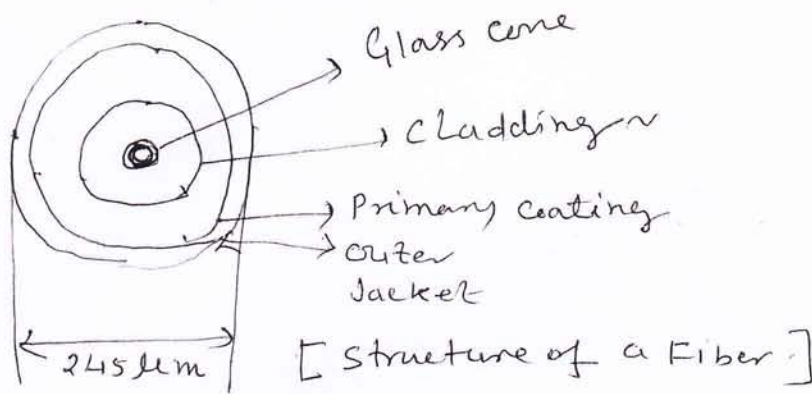 Glass core
cladding
Primary coating
outer
Jacket
245 μm
[Structure of a Fiber.]